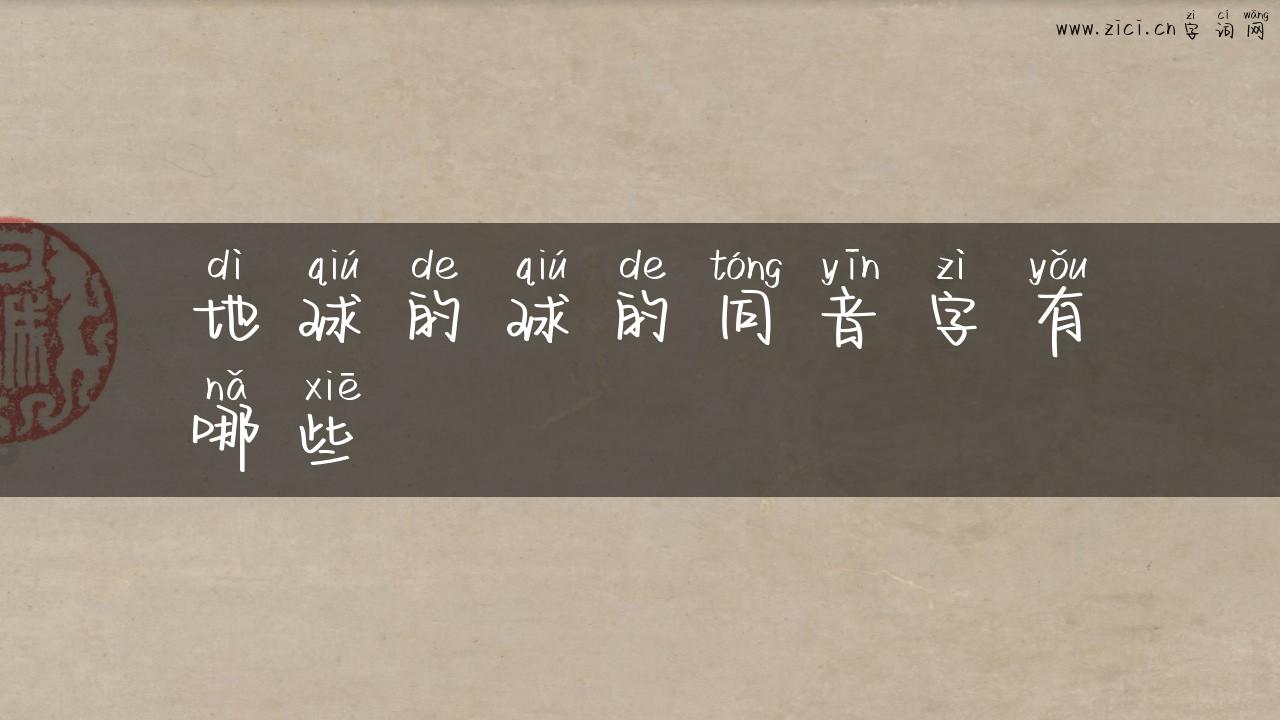 zì cí wǎng
www.zici.cn 字词网
dì qiú de qiú de tóng yīn zì yǒu
地球的球的同音字有
nǎ xiē
哪些